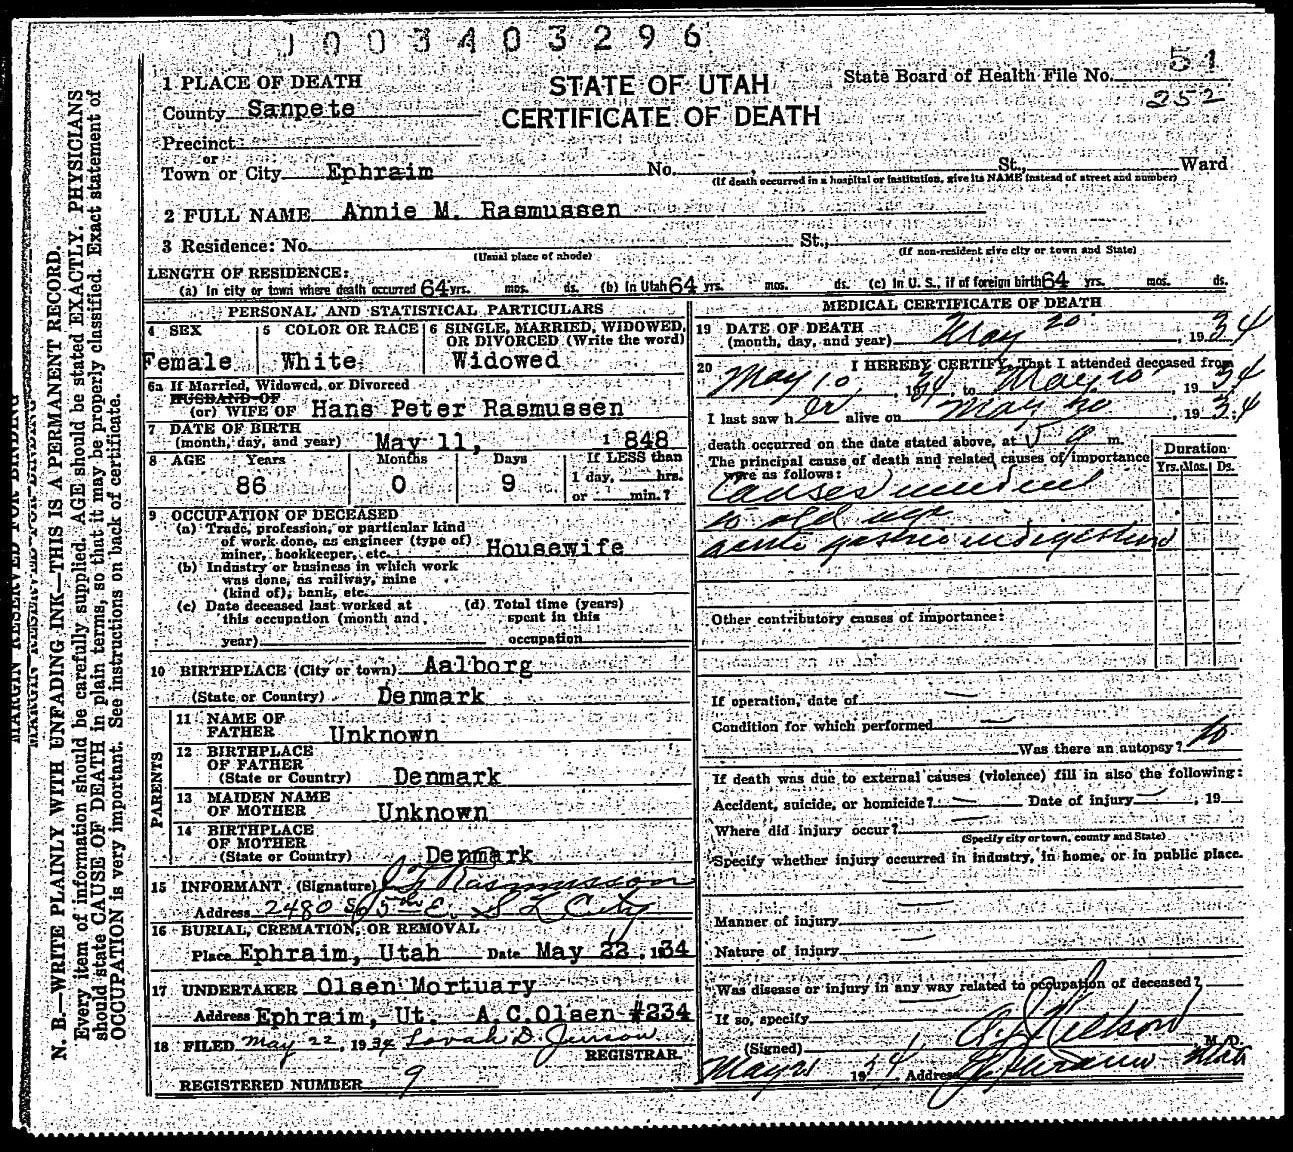 0003403296
1 PLACE OF DEATH
STATE OF UTAH
CERTIFICATE OF DEATH
State Board of Health File No. 51
252
County Sanpete
Precinct
or
Town or City Ephraim No. , St., Ward
(If death occurred in a hospital or institution, give its NAME instead of street and number)
2 FULL NAME Annie M. Rasmussen
3 Residence: No. St.,
(Usual place of abode) (If non-resident give city or town and State)
LENGTH OF RESIDENCE:
(a) In city or town where death occurred 64 yrs. mos. ds. (b) in Utah 64 yrs. mos. ds. (c) in U. S., if of foreign birth 64 yrs. mos. ds.
PERSONAL AND STATISTICAL PARTICULARS
4 SEX
Female
5 COLOR OR RACE
White
6 SINGLE, MARRIED, WIDOWED, OR DIVORCED (Write the word)
Widowed
6a If Married, Widowed, or Divorced
HUSBAND OF
(or) WIFE OF Hans Peter Rasmussen
7 DATE OF BIRTH
(month, day, and year) May 11, 1848
8 AGE Years Months Days If LESS than
86 0 9 1 day, hrs.
or min.?
9 OCCUPATION OF DECEASED
(a) Trade, profession, or particular kind
of work done, as engineer (type of)
miner, bookkeeper, etc. Housewife
(b) Industry or business in which work
was done, as railway, mine
(kind of), bank, etc.
(c) Date deceased last worked at
this occupation (month and
year)
(d) Total time (years)
spent in this
occupation
10 BIRTHPLACE (City or town) Aalborg
(State or Country) Denmark
PARENTS
11 NAME OF
FATHER Unknown
12 BIRTHPLACE
OF FATHER
(State or Country) Denmark
13 MAIDEN NAME
OF MOTHER Unknown
14 BIRTHPLACE
OF MOTHER
(State or Country) Denmark
15 INFORMANT (Signature) Rasmussen
Address 2480 So 5th E. S L City
16 BURIAL, CREMATION, OR REMOVAL
Place Ephraim, Utah Date May 22, 1934
17 UNDERTAKER Olsen Mortuary
Address Ephraim, Ut. A.C.Olsen #234
18 FILED May 22, 1934 Lovah D. Jenson
REGISTRAR.
REGISTERED NUMBER 9
MEDICAL CERTIFICATE OF DEATH
19 DATE OF DEATH
(month, day, and year) May 20, 1934
20 I HEREBY CERTIFY, That I attended deceased from
May 10, 1934, to May 20, 1934
I last saw her alive on May 20, 1934
death occurred on the date stated above, at 5 a m.
The principal cause of death and related causes of importance
were as follows:
Duration
Yrs. Mos. Ds.
Causes
to old age
acute gastric indigestion
Other contributory causes of importance:
If operation, date of —
Condition for which performed —
Was there an autopsy? No
If death was due to external causes (violence) fill in also the following:
Accident, suicide, or homicide? — Date of injury —, 19
Where did injury occur? —
(Specify city or town, county and State)
Specify whether injury occurred in industry, in home, or in public place.
—
Manner of injury —
Nature of injury —
Was disease or injury in any way related to occupation of deceased?
—
If so, specify
(Signed) M. D.
May 21 1934, Address Ephraim Utah
MARGIN RESERVED FOR BINDING
MARGIN RESERVED FOR BINDING
N. B.—WRITE PLAINLY WITH UNFADING INK—THIS IS A PERMANENT RECORD.
Every item of information should be carefully supplied. AGE should be stated EXACTLY. PHYSICIANS
should state CAUSE OF DEATH in plain terms, so that it may be properly classified. Exact statement of
OCCUPATION is very important. See instructions on back of certificate.